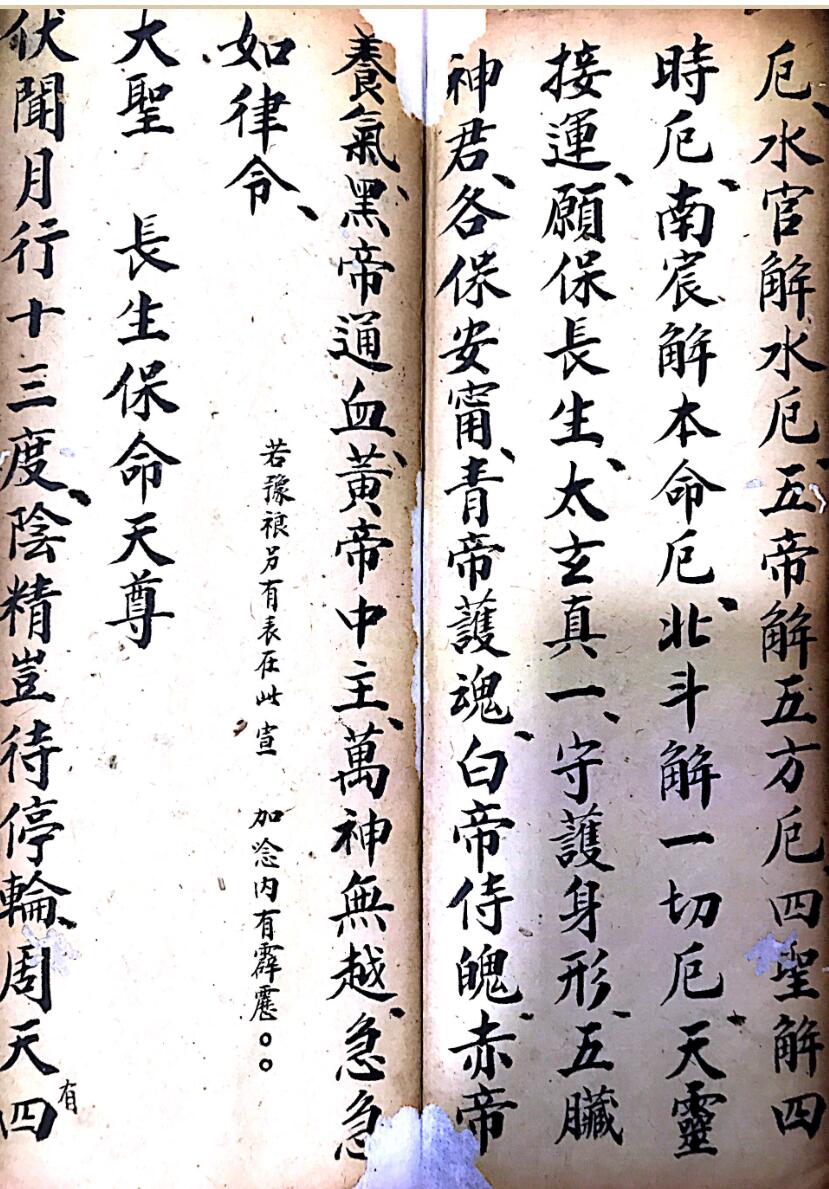 厄、水官解水厄、五帝解五方厄、四聖解四
時厄、南宸解本命厄、北斗解一切厄、天靈
接運、願保長生、太玄真一、守護身形、五臟
神君、各保安甯、青帝護魂、白帝侍魄、赤帝
養氣、黑帝通血、黃帝中主、萬神無越、急急
如律令、
若豫禳另有表在此宣 加念内有霹靂。。
大聖 長生保命天尊
伏聞月行十三度、陰精豈待停輪、周天四
有